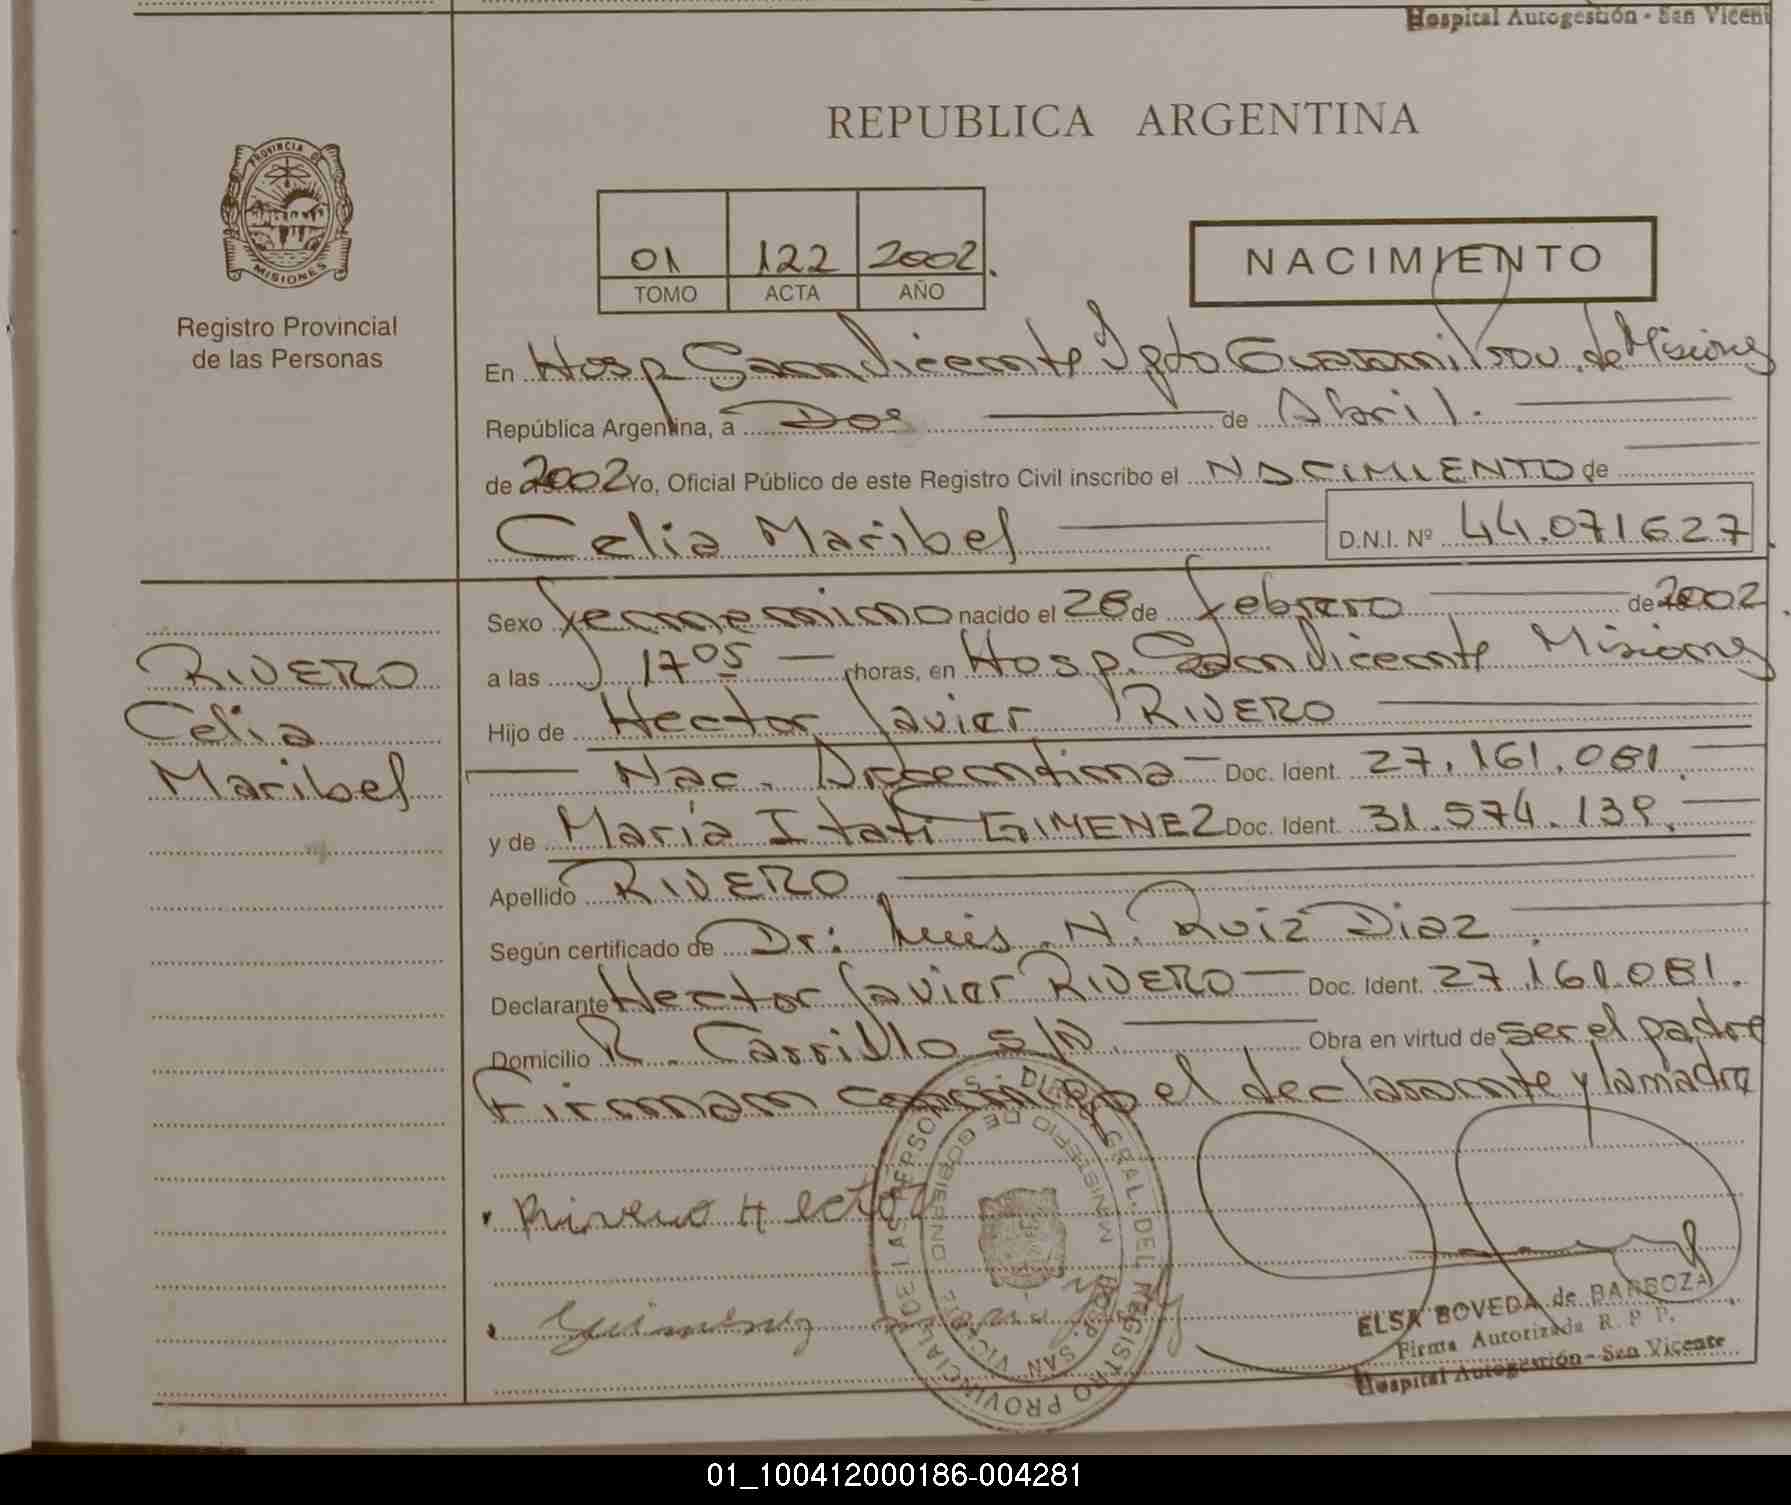 Hospital Autogestión - San Vicent
REPUBLICA ARGENTINA
PROVINCIA DE
MISIONES
Registro Provincial
de las Personas
01 122 2002.
TOMO ACTA AÑO
NACIMIENTO
En Hosp San Vicente Dpto Guarani Prov. de Misiones
República Argentina, a Dos de Abril.
de 2002 Yo, Oficial Público de este Registro Civil inscribo el NACIMIENTO de
Celia Maribel D.N.I. Nº 44.071627.
Sexo femenino nacido el 28 de febrero de 2002.
a las 17 05 horas, en Hosp. San Vicente Misiones
Hijo de Hector Javier RIVERO
Nac. Argentina Doc. Ident. 27.161.081.
y de María Itatí GIMENEZ Doc. Ident. 31.574.139.
Apellido RIVERO
Según certificado de Dr: Luis N. Ruiz Diaz
Declarante Hector Javier RIVERO Doc. Ident. 27.161.081.
Domicilio R. Carrillo s/n. Obra en virtud de ser el padre
Firman conmigo el declarante y la madre
RIVERO
Celia
Maribel
Rivero Hector
Gimenez
REGISTRO PROVINCIAL DE LAS PERSONAS - DIR. GRAL. DEL
MINISTERIO DE GOBIERNO
HOSP. SAN VICENTE
ELSA BOVEDA de BARBOZA
Firma Autorizada R. P. P.
Hospital Autogestión - San Vicente
01_100412000186-004281